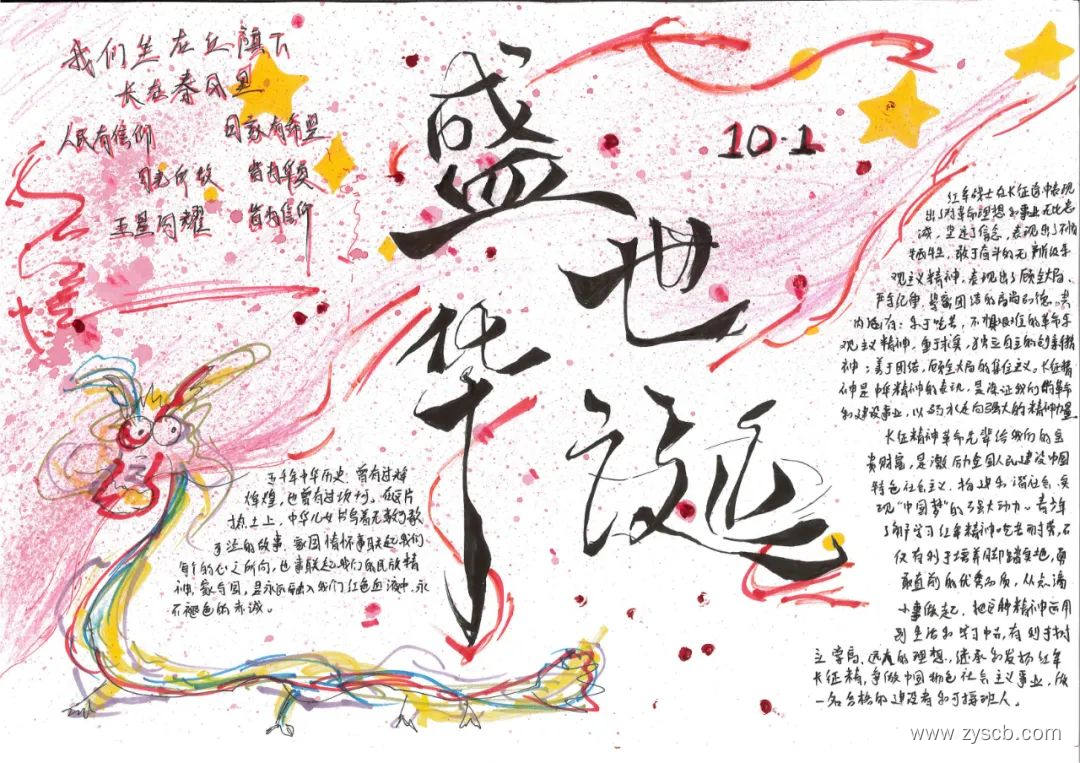 我们生在红旗下
长在春风里
人民有信仰 国家有希望
目光所致 皆为华夏
五星闪耀 皆为信仰
盛世华诞
10·1
五千年中华历史,曾有过辉
煌,也曾有过坎坷。在这片
热土上,中华儿女书写着无数可歌
可泣的故事。家国情怀事联起我们
每个的心之所向,也事联起我们的民族精
神。家与国,早永远融入我们红色血液中,永
不褪色的赤诚。
红军战士在长征途中表现
出了对革命理想和事业无比忠
诚,坚定了信念,表现出了不怕
牺牲,敢于奋斗的无产阶级乐
观主义精神,表现出了顾全大局、
严守纪律、紧密团结的高尚品德。其
内涵有:乐于吃苦,不惧艰难的革命乐
观主义精神,重于求实,独立自主的创新胆
神;善于团结,顾全大局的集体主义。长征精
神是中华精神的表现,是保证我们的革命
和建设事业,以弱小走向强大的精神力量
长征精神革命先辈给我们的宝
贵财富,是激励全国人民建设中国
特色社会主义、构建和谐社会,实
现“中国梦”的强大动力。青少年
了解学习红军精神吃苦耐劳,不
仅有利于培养脚踏实地,勇
敢直前的优秀品质,从点滴
小事做起,把这种精神运用
到生活和学习中去,有利于树
立崇高、远大的理想,继承和发扬红军
长征精,争做中国特色社会主义事业,做
一名合格的建设者和可接班人。
www.zyscb.com